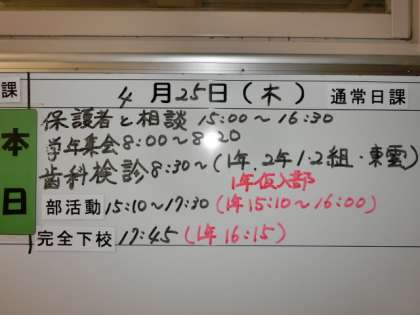 課
4月25日(木) 通常日課
本日
保護者と相談 15:00～16:30
学年集会 8:00～8:20
歯科検診 8:30～(1年.2年1・2組・東雲)
1年仮入部
部活動 15:10～17:30 (1年15:10～16:00)
完全下校 17:45 (1年16:15)